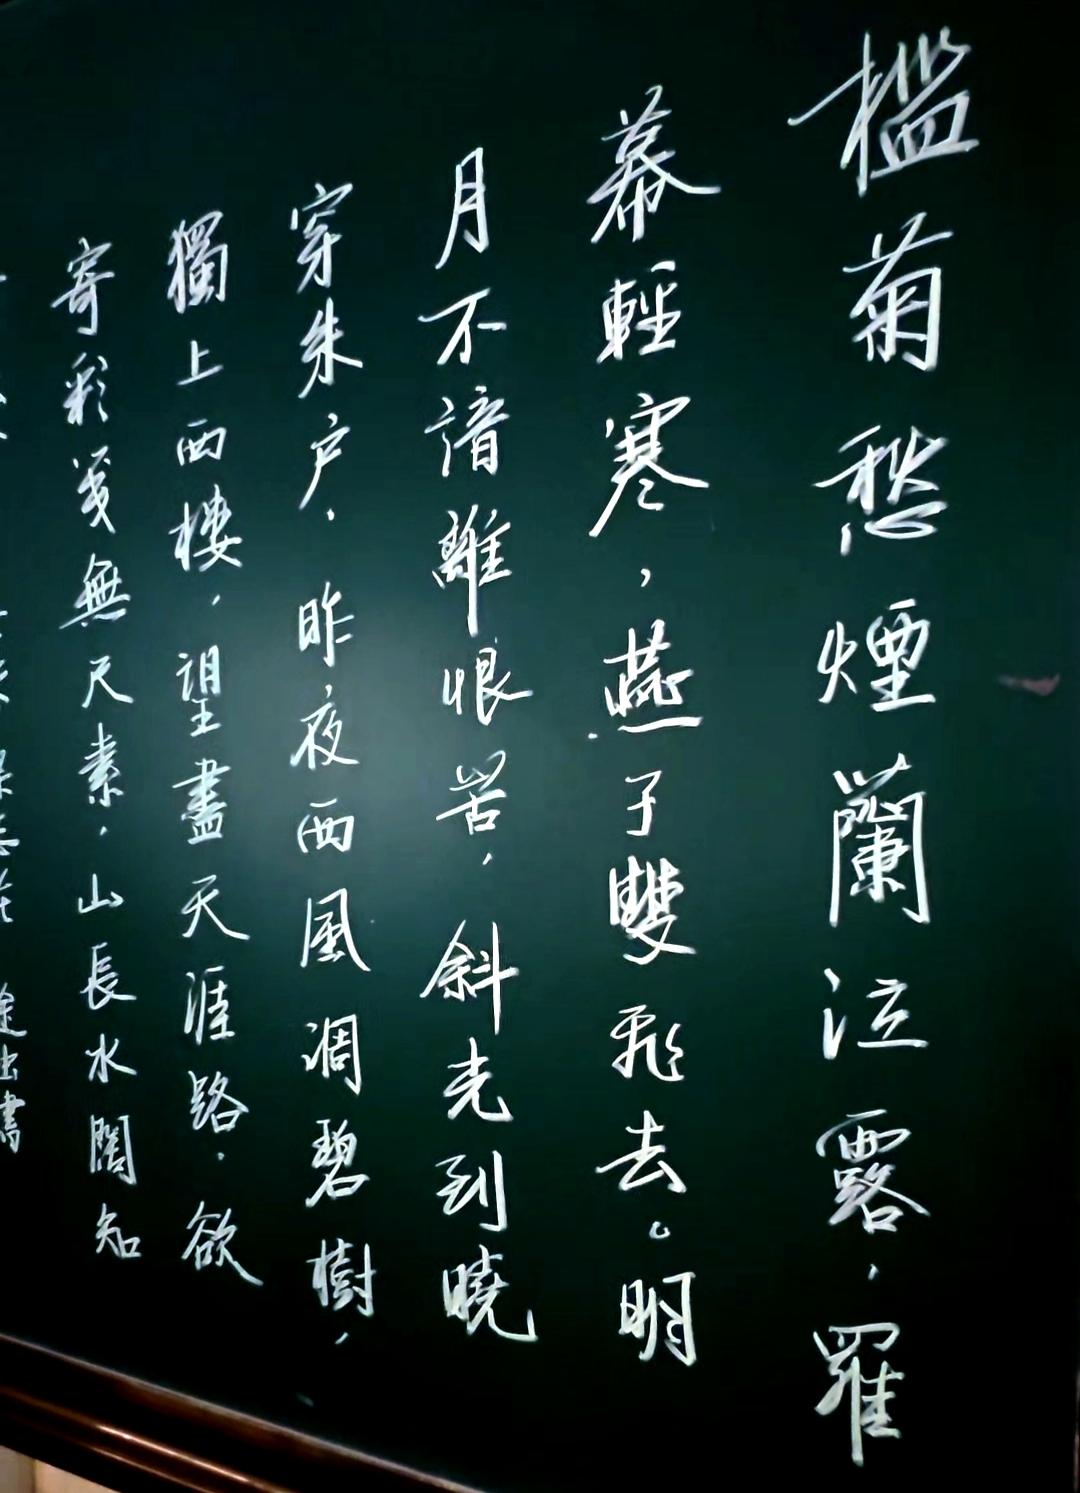 檻菊愁煙蘭泣露，羅
幕輕寒，燕子雙飛去。明
月不諳離恨苦，斜光到曉
穿朱户．昨夜西風凋碧樹，
獨上西樓，望盡天涯路．欲
寄彩箋無尺素，山長水闊知